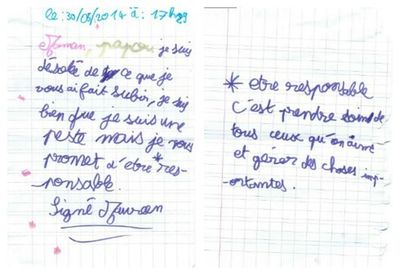 le : 30/05/2014 à : 17h29
Maman, papou je suis
désolé de ce que je
vous ai fait subir, je sais
bien que je suis une
peste mais je vous
promet d'être * res-
-ponsable.
Signé
* etre responsable
c'est prendre soin de
tous ceux qu'on aime
et gérer des choses imp-
-ortantes.